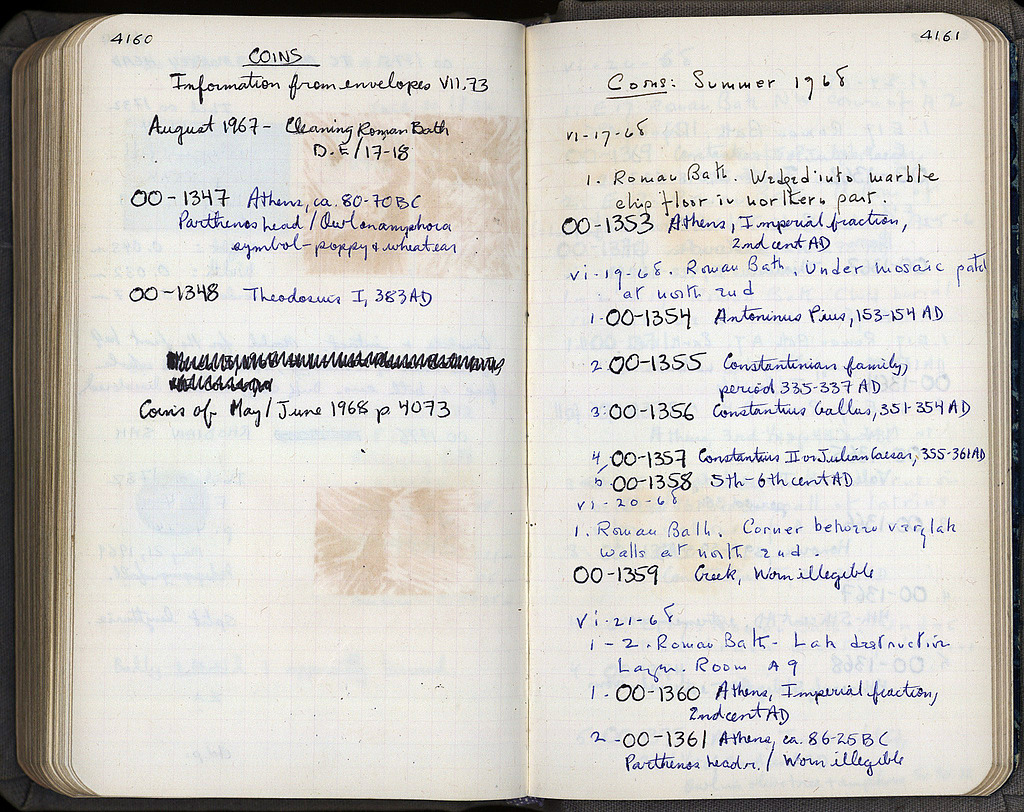 4160
COINS
Information from envelopes VII.73
August 1967 - Cleaning Roman Bath
D-E/17-18
OO-1347 Athens, ca. 80-70 BC
Parthenos head / Owl on amphora
symbol - poppy & wheat ear
OO-1348 Theodosius I, 383 AD
Coins of May/June 1968 p. 4073
4161
Coins: Summer 1968
VI-17-68
1. Roman Bath. Wedged into marble
chip floor in northern part.
OO-1353 Athens, Imperial fraction,
2nd cent AD
VI-19-68. Roman Bath. Under mosaic patch
at north end
1. OO-1354 Antoninus Pius, 153-154 AD
2. OO-1355 Constantinian family,
period 335-337 AD
3. OO-1356 Constantius Gallus, 351-354 AD
4. OO-1357 Constantius II or Julian Caesar, 355-361 AD
5. OO-1358 5th-6th cent AD
VI-20-68
1. Roman Bath. Corner between very late
walls at north end.
OO-1359 Greek, Worn illegible
VI-21-68
1-2. Roman Bath - Late destruction
Layer. Room A9
1. OO-1360 Athens, Imperial fraction,
2nd cent AD
2. OO-1361 Athens, ca. 86-25 BC
Parthenos head r. / Worn illegible